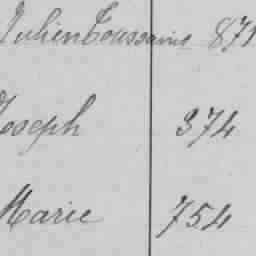 Julien Toussaint 871
Joseph 374
Marie 754